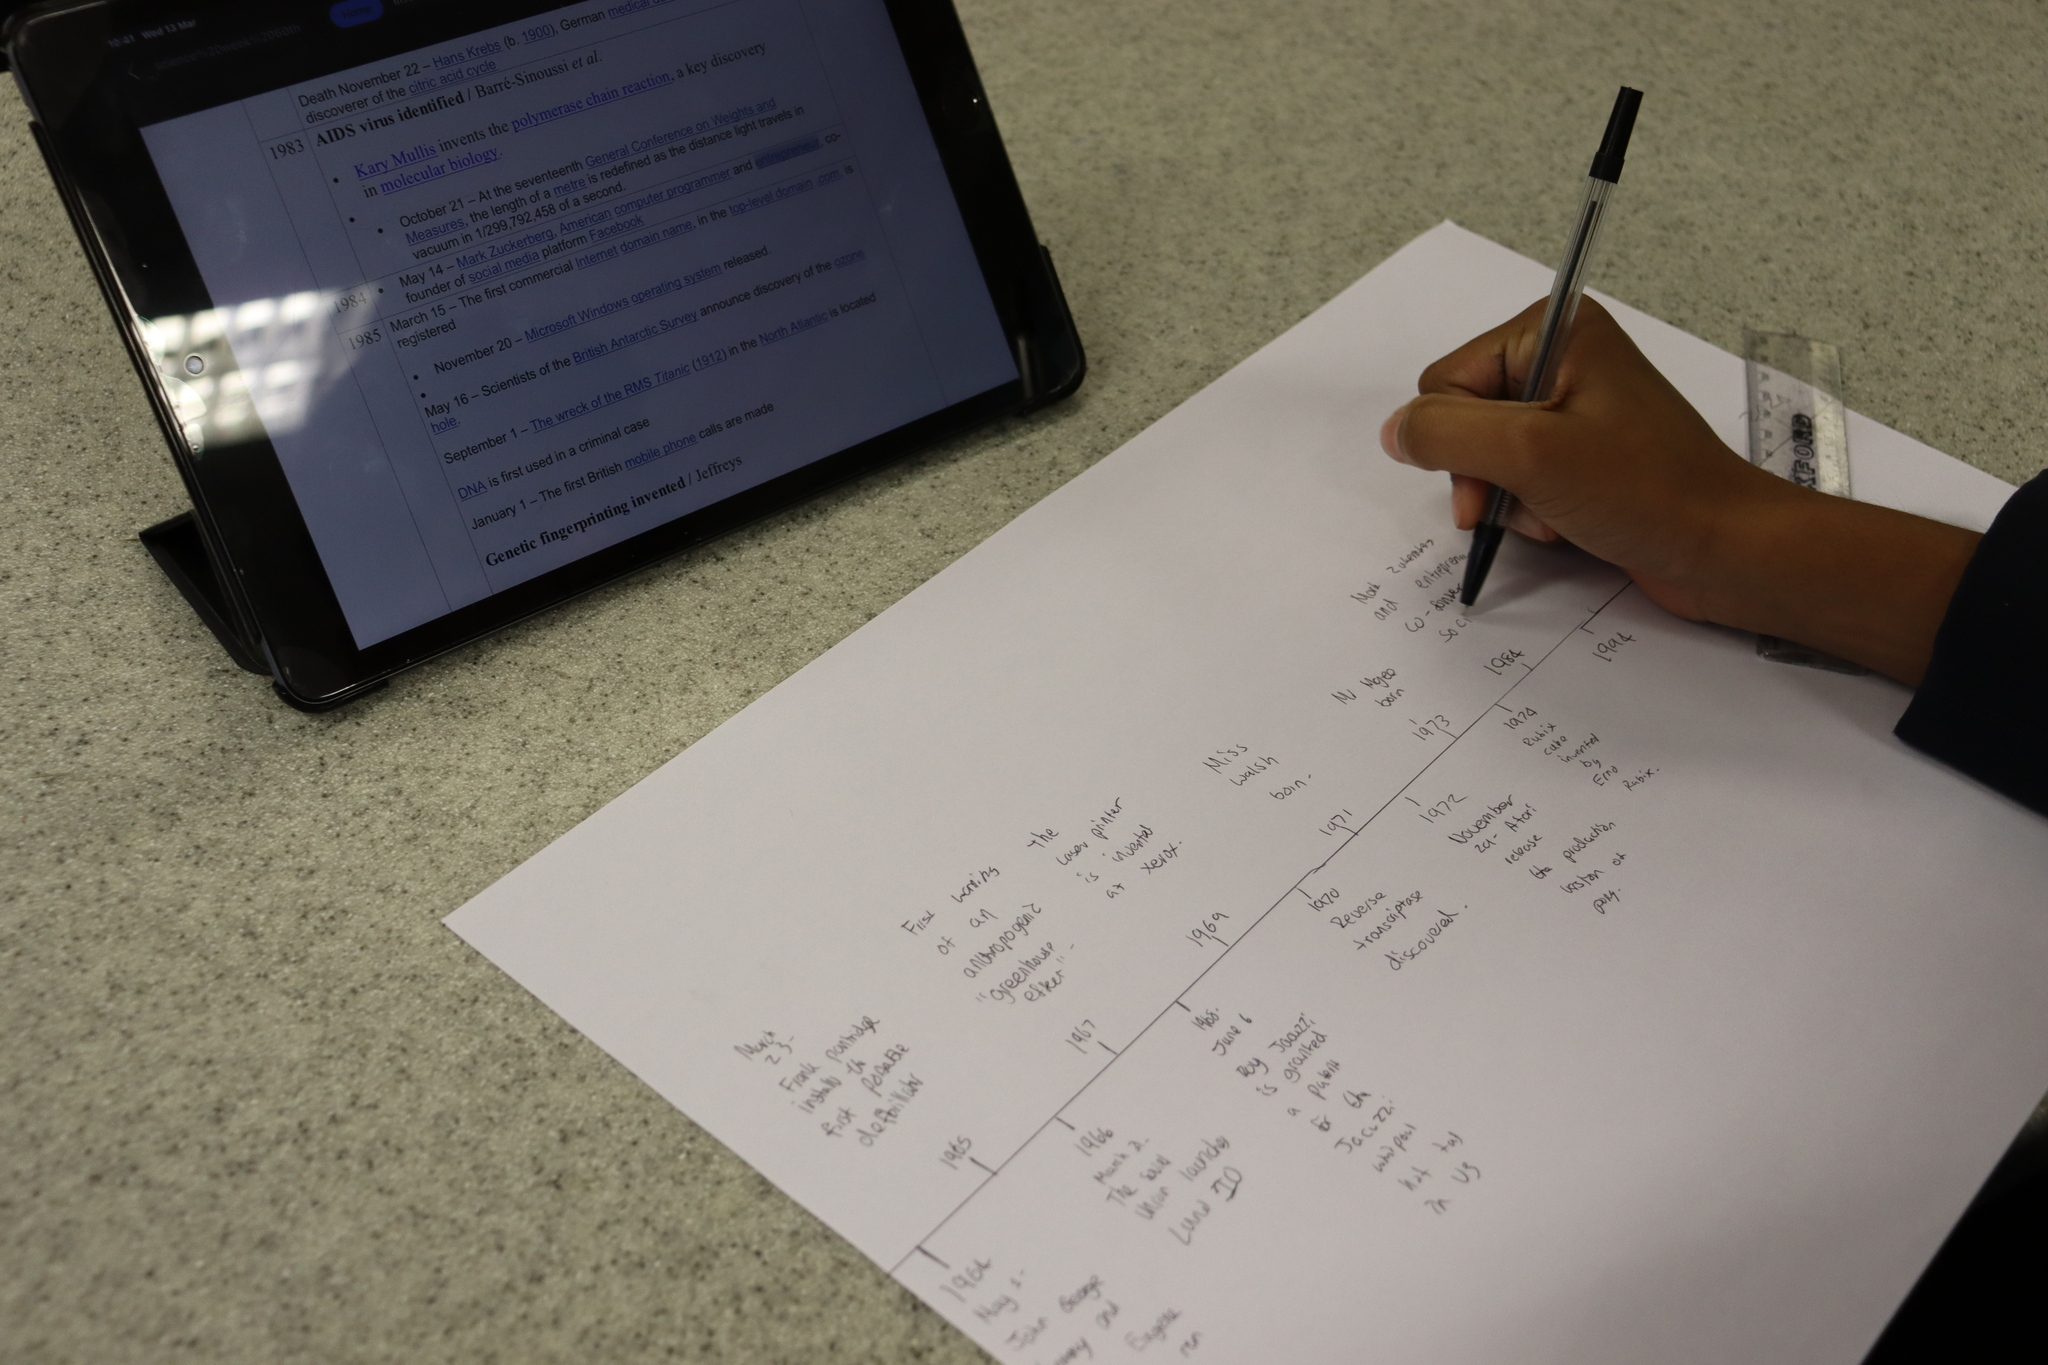 10:41 Wed 13 Mar
Home
Death November 22 – Hans Krebs (b. 1900), German medical
discoverer of the citric acid cycle
1983
AIDS virus identified / Barré-Sinoussi et al.
Kary Mullis invents the polymerase chain reaction, a key discovery
in molecular biology.
October 21 – At the seventeenth General Conference on Weights and
Measures, the length of a metre is redefined as the distance light travels in
vacuum in 1/299,792,458 of a second.
1984
May 14 – Mark Zuckerberg, American computer programmer and entrepreneur, co-
founder of social media platform Facebook
1985
March 15 – The first commercial Internet domain name, in the top-level domain .com, is
registered
November 20 – Microsoft Windows operating system released.
May 16 – Scientists of the British Antarctic Survey announce discovery of the ozone
hole.
September 1 – The wreck of the RMS Titanic (1912) in the North Atlantic is located
DNA is first used in a criminal case
January 1 – The first British mobile phone calls are made
Genetic fingerprinting invented / Jeffreys
OXFORD
1994
1984
Mark
and entrepreneu
co-
soci
1974
Rubix
cube
invented
by
Erno
Rubix.
1973
Mr
born
1972
November
29- Atari
release
the production
of
pong.
1971
Miss
Walsh
born-
1970
Reverse
transcriptase
discovered.
1969
The
laser printer
is invented
at xerox.
1968.
June 6
Roy Jacuzzi
is granted
a
for the
Jacuzzi
whirlpool
hot
in US
1967
First warning
of an
anthropogenic
"greenhouse
effect"-
1966
March
The
Union launches
Luna 10
1965
March
23-
Frank partridge
installs the
first
defibrillator
1964
May 1-
John George
and